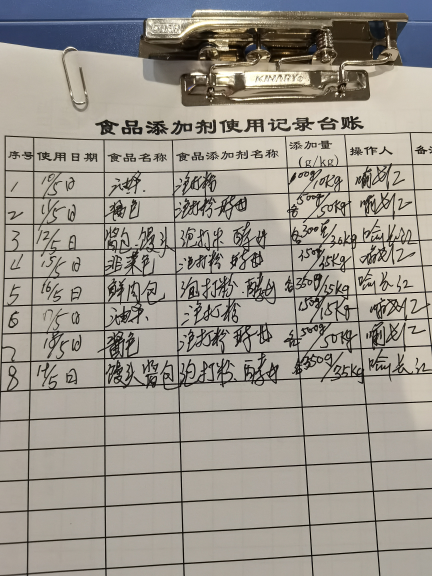 KINARY
食品添加剂使用记录台账
序号 使用日期 食品名称 食品添加剂名称 添加量(g/kg) 操作人 备
1 10/5日 泡打粉 100g/10kg
2 11/5日 酱包 泡打粉 酵母 各500g/50kg
3 12/5日 酱包.馒头 泡打粉 酵母 各300g/30kg 喻长江
4 15/5日 韭菜包 泡打粉 酵母
5 16/5日 鲜肉包 泡打粉 酵母 各350g/35kg 喻长江
6 17/5日 泡打粉 150g/15kg
7 18/5日 酱包 泡打粉 酵母 各500g/50kg
8 19/5日 馒头酱包 泡打粉.酵母 各350g/35kg 喻长江